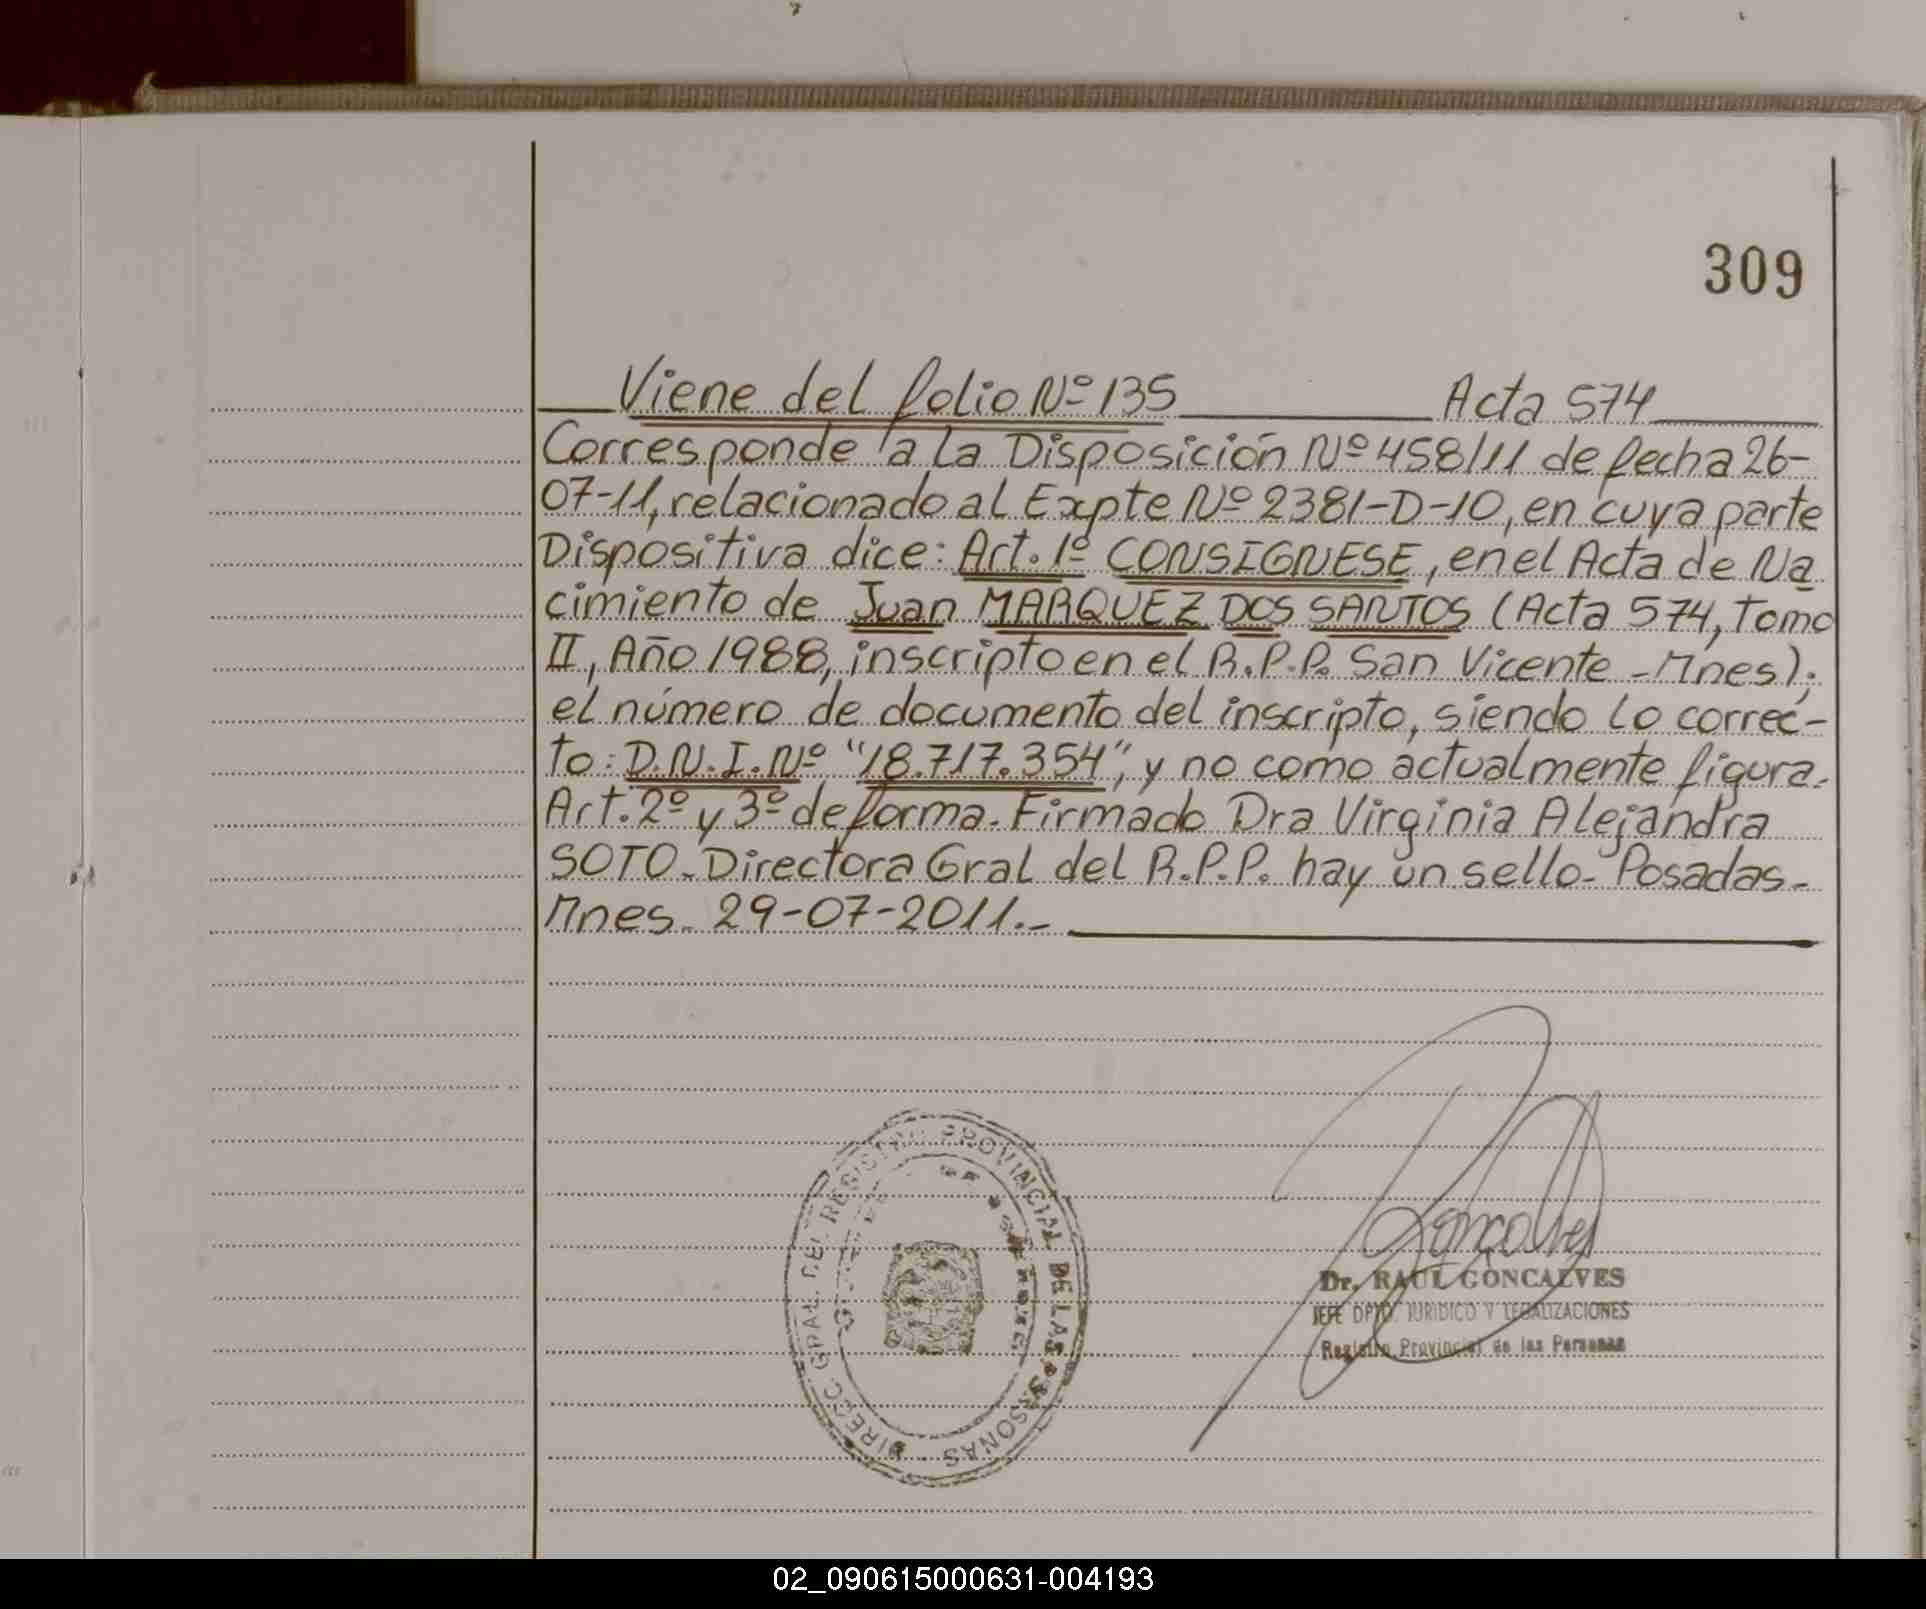 309
Viene del folio Nº 135 Acta 574
Corresponde a la Disposición Nº 458/11 de fecha 26-
07-11, relacionado al Expte Nº 2381-D-10, en cuya parte
Dispositiva dice: Art. 1º CONSIGNESE, en el Acta de Na
cimiento de Juan MARQUEZ DOS SANTOS (Acta 574, Tomo
II, Año 1988, inscripto en el R.P.P. San Vicente -Mnes);
el número de documento del inscripto, siendo lo correc-
to: D.N.I. Nº "18.717.354", y no como actualmente figura.
Art. 2º y 3º de forma. Firmado Dra Virginia Alejandra
SOTO. Directora Gral del R.P.P. hay un sello - Posadas -
Mnes. 29-07-2011.-
DIRECC. GRAL. DEL REGISTRO PROVINCIAL DE LAS PERSONAS
Goncalves
Dr. RAUL GONCALVES
JEFE DPTO. JURIDICO Y LEGALIZACIONES
Registro Provincial de las Personas
02_090615000631-004193